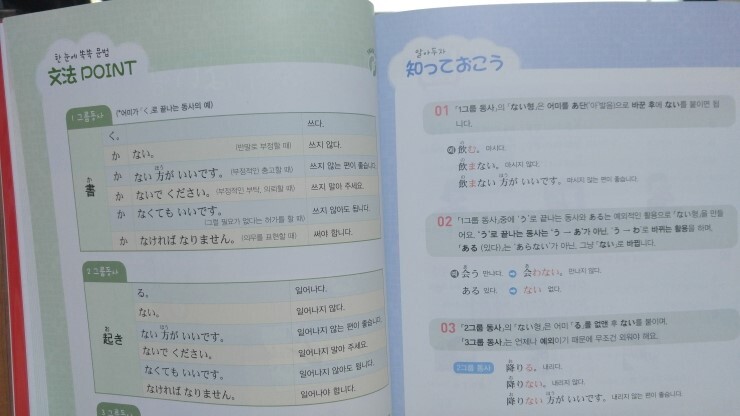 한 눈에 쏙쏙 문법
文法 POINT
1 그룹동사 (*어미가 「く」로 끝나는 동사의 예)
か
書
く。 쓰다.
か ない。 (반말로 부정할 때) 쓰지 않다.
か ない 方が いいです。 (부정적인 충고할 때) 쓰지 않는 편이 좋습니다.
ほう
か ないで ください。 (부정적인 부탁, 의뢰할 때) 쓰지 말아 주세요.
か なくても いいです。 쓰지 않아도 됩니다.
(그럴 필요가 없다는 허가를 할 때)
か なければ なりません。 (의무를 표현할 때) 써야 합니다.
2 그룹동사
お
起き
る。 일어나다.
ない。 일어나지 않다.
ほう
ない 方が いいです。 일어나지 않는 편이 좋습니다.
ないで ください。 일어나지 말아 주세요.
なくても いいです。 일어나지 않아도 됩니다.
なければ なりません。 일어나야 합니다.
3 그룹동사
알아두자
知っておこう
01 「1그룹 동사」의 「ない형」은 어미를 あ단(‘아’발음)으로 바꾼 후에 ない를 붙이면 됩
니다.
예 飲む。 마시다.
飲まない。 마시지 않다.
飲まない 方が いいです。 마시지 않는 편이 좋다.
02 「1그룹 동사」중에 「う」로 끝나는 동사와 ある는 예외적인 활용으로 「ない형」을 만들
어요. “う”로 끝나는 동사는 ‘う → あ’가 아닌, ‘う → わ’로 바뀌는 활용을 하며,
「ある (있다)」는 ‘あらない’가 아닌, 그냥 “ない”로 바뀝니다.
예 会う 만나다. → 会わない。 만나지 않다.
ある 있다. → ない 없다.
03 「2그룹 동사」의 「ない형」은 어미 「る」를 없앤 후 ない를 붙이며,
「3그룹 동사」는 언제나 예외이기 때문에 무조건 외워야 해요.
2그룹 동사 降りる。 내리다.
降りない。 내리지 않다.
降りない 方が いいです。 내리지 않는 편이 좋다.